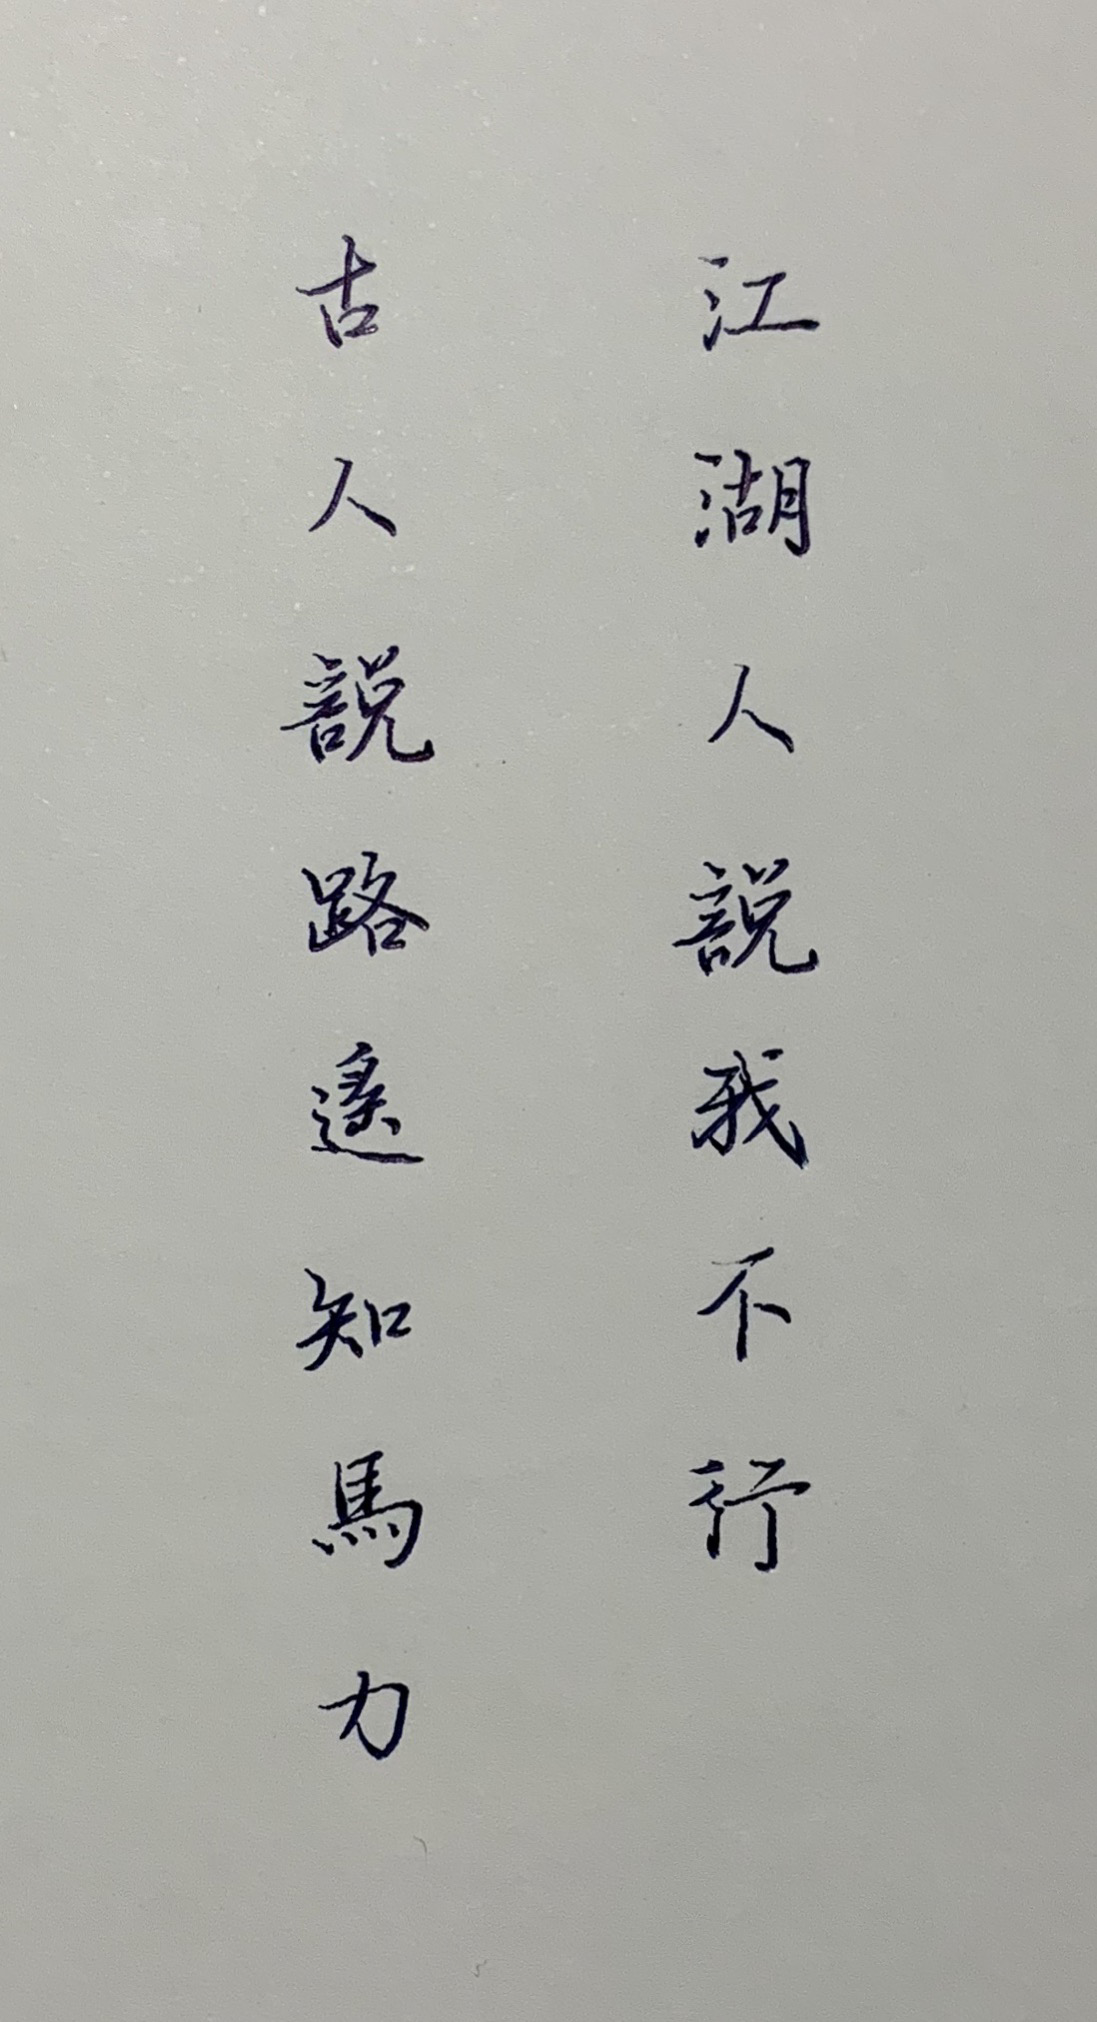 江湖人説我不行
古人説路遙知馬力